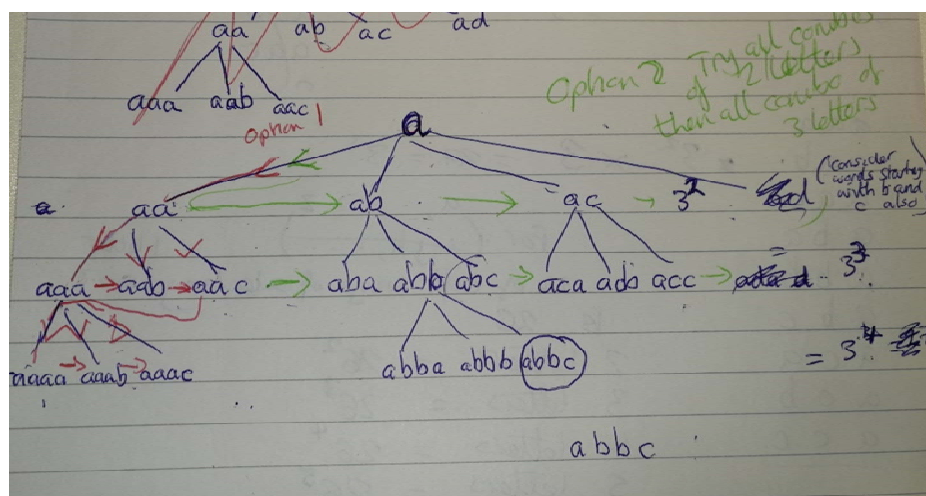 aa ab ac ad
aaa aab aac
Option 1
Option 2 Try all combos
of 2 letters
then all combo of
3 letters
a
a aa ab ac 3² ad
(consider
words starting
with b and
c also)
aaa aab aac aba abb abc aca acb acc = 3³
aaaa aaab aaac abba abbb abbc = 3⁴
abbc